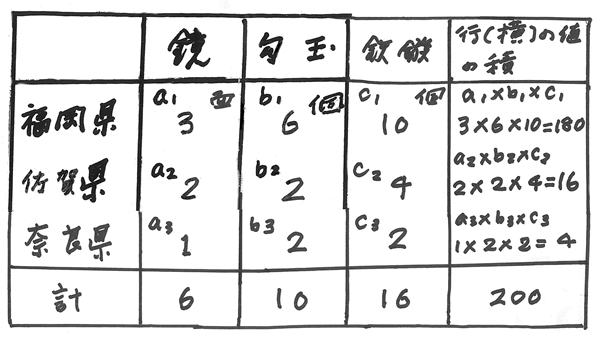 鏡 勾玉 鉄鏃 行(横)の値の積
福岡県 a₁ 面 3 b₁ 個 6 c₁ 個 10 a₁×b₁×c₁ 3×6×10=180
佐賀県 a₂ 2 b₂ 2 c₂ 4 a₂×b₂×c₂ 2×2×4=16
奈良県 a₃ 1 b₃ 2 c₃ 2 a₃×b₃×c₃ 1×2×2=4
計 6 10 16 200